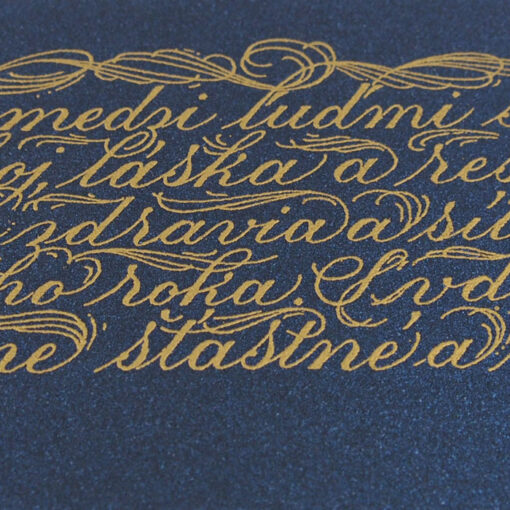 medzi ľuďmi s
oj, láska a reš
zdravia a síl
ho roka. Svd
ne šťastné a